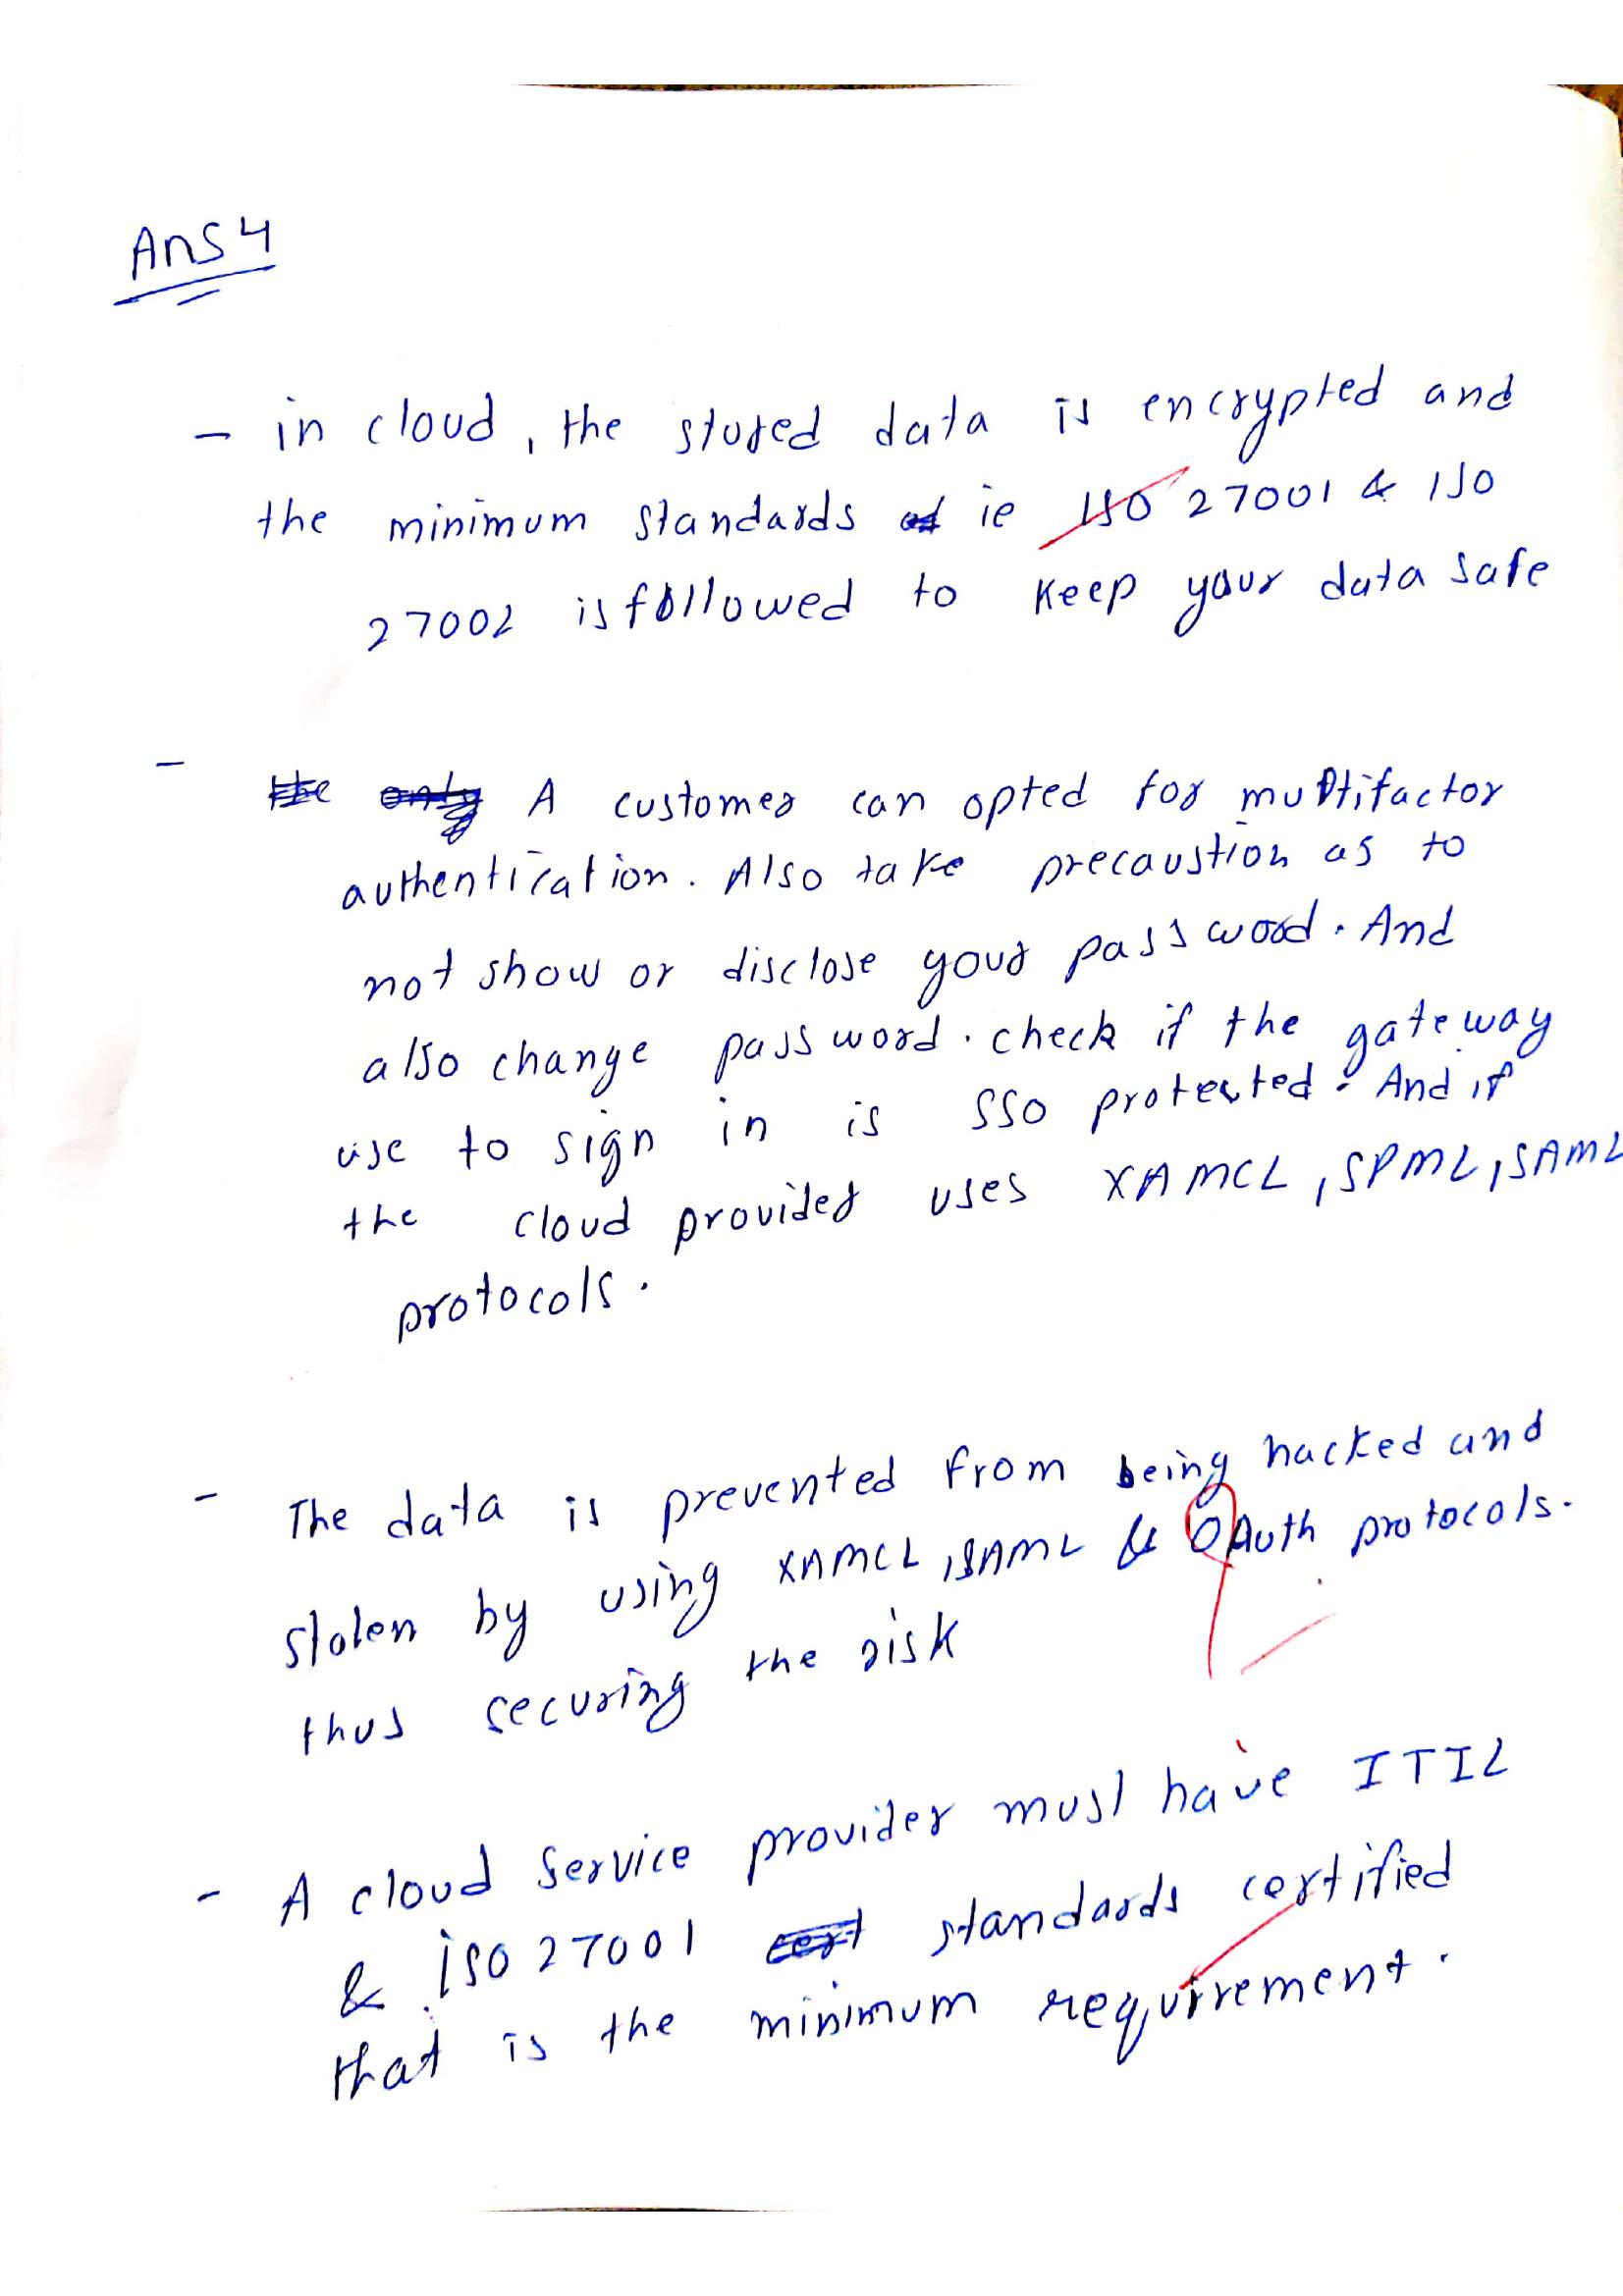 Ans 4
- in cloud, the stored data is encrypted and
the minimum standards ie ISO 27001 & ISO
27002 is followed to keep your data safe
- the only A customer can opted for multifactor
authentication. Also take precaustion as to
not show or disclose your password. And
also change password. check if the gateway
use to sign in is SSO protected. And if
the cloud provider uses XAMCL, SPML, SAML
protocols.
- The data is prevented from being hacked and
stolen by using XAMCL, SAML & OAuth protocols.
thus securing the risk
- A cloud service provider must have ITIL
& iso 27001 cert standards certified
that is the minimum requirement.